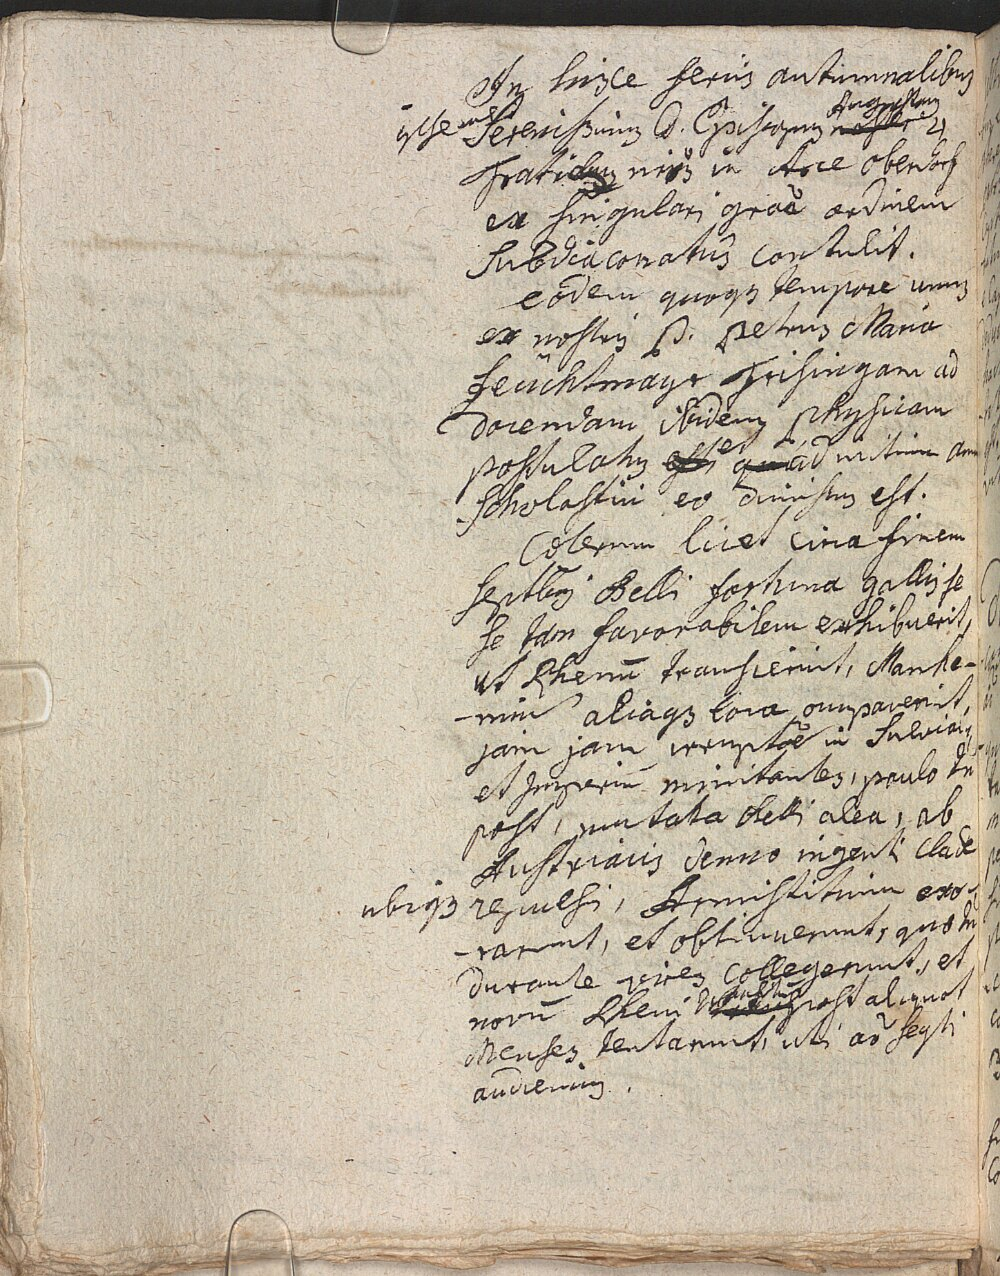 In hisce feriis autumnalibus
ipsemet Serenissimus D. Episcopus Augustanus 4
Fratribus nris in Arce oberdorf
ex singulari graã ordinem
Subdiaconatus contulit.
eodem quoqз tempore unus
ex nostris P. Petrus Maria
Feüchtmayr Frisingam ad
docendam ibidem Physicam
postulatus et ad initium anni
scholastici eo dimissus est.
Coterum licet circa finem
septbris Belli fortuna gallis se
se tam favorabilem exhibuerit,
ut Rhenũ transierint, Manhe-
-mium aliaqз loca occupaverint,
jam jam irruptõe in Sueviam
et Imperiũ minitantes, paulo tn
post, mutata Belli alea, ab
Austriacis denuo ingenti clade
ubiqз repulsi, Armistitium exo-
-rarunt, et obtinuerunt, quo tn
durante vires collegerunt, et
novũ Rheni post aliquot
Menses tentarunt, uti aõ seqti
audiemus.